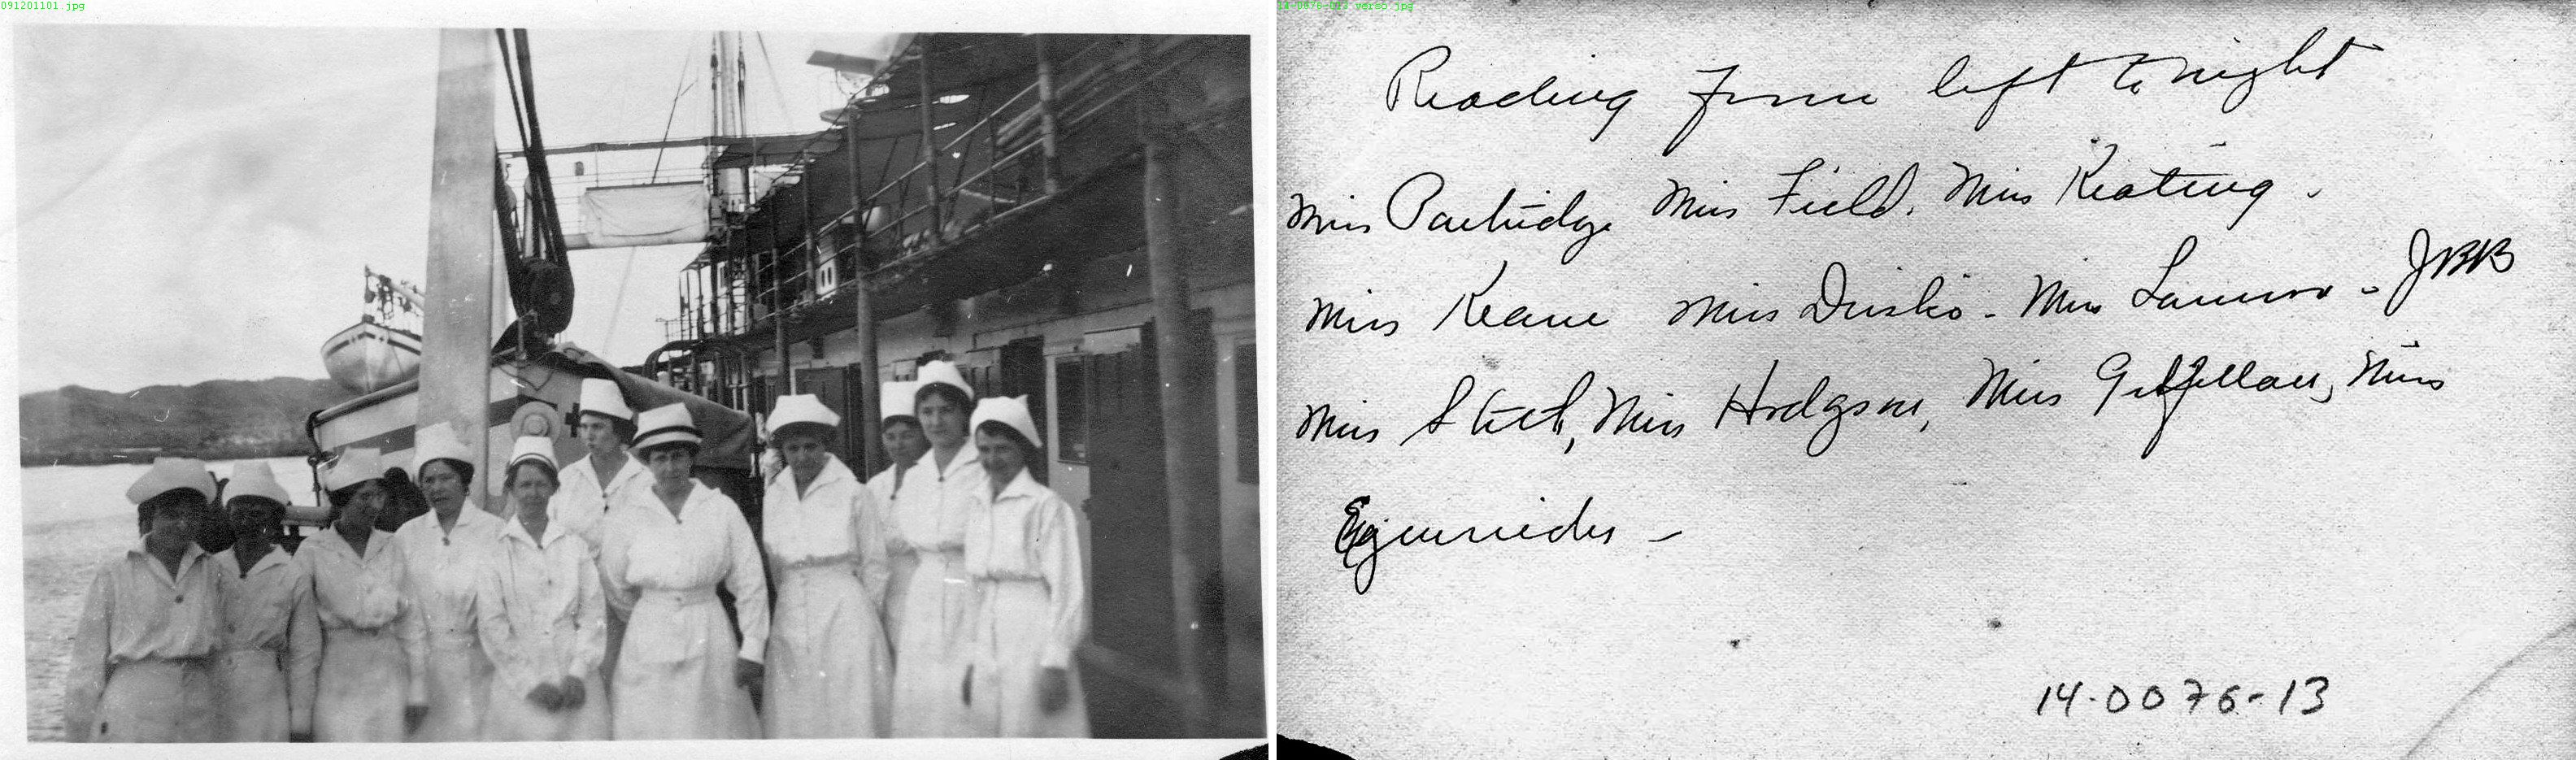 091201101.jpg
14-0076-013 verso.jpg
Reading from left to right
Miss Partridge Miss Field. Miss Keating.
Miss Keane Miss Drisko - Miss - JBB
Miss Stitt, Miss Hodgson, Miss Gilfillan, Miss
14-0076-13